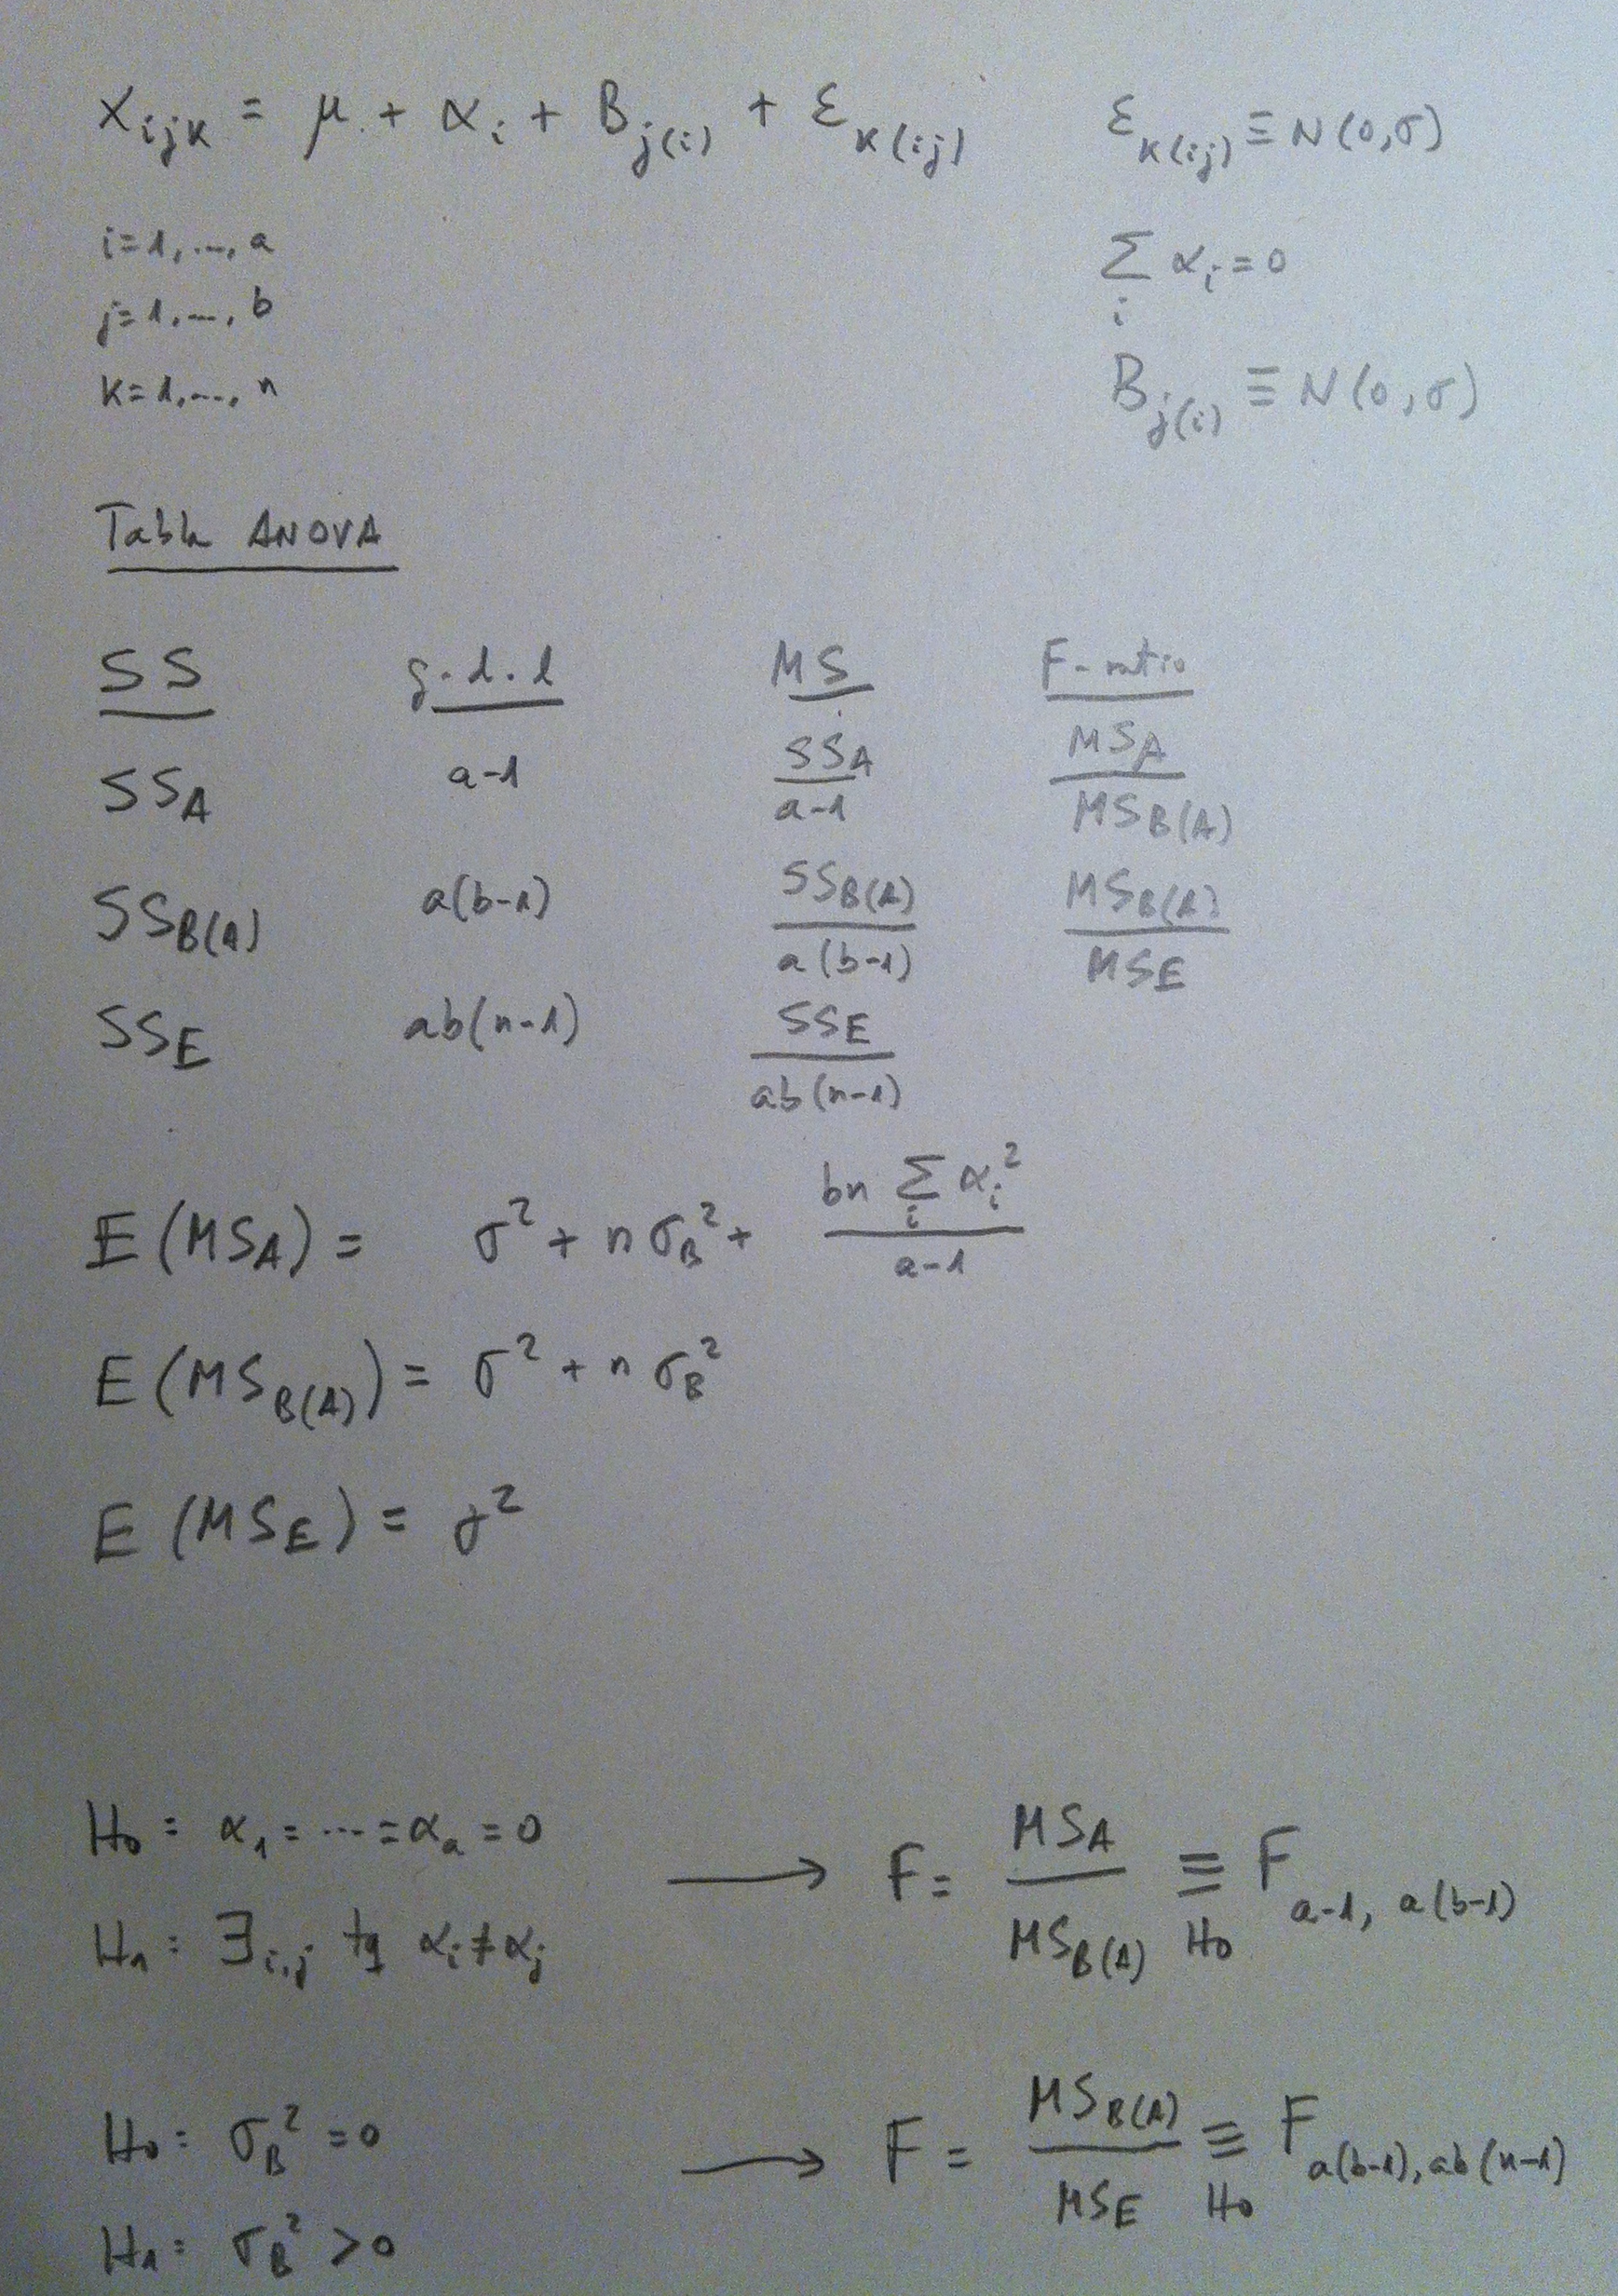 X_{ijk} = μ + α_i + B_{j(i)} + ε_{k(ij)}    ε_{k(ij)} ≡ N(0,σ)
i=1,...,a    Σ_i α_i = 0
j=1,...,b
k=1,...,n    B_{j(i)} ≡ N(0,σ)
Tabla ANOVA
SS    g.d.l    MS    F-ratio
SS_A    a-1    SS_A/(a-1)    MS_A/MS_{B(A)}
SS_{B(A)}    a(b-1)    SS_{B(A)}/(a(b-1))    MS_{B(A)}/MS_E
SS_E    ab(n-1)    SS_E/(ab(n-1))
E(MS_A) = σ² + nσ_B² + (bn Σ_i α_i²)/(a-1)
E(MS_{B(A)}) = σ² + nσ_B²
E(MS_E) = σ²
H₀: α₁ = ... = α_a = 0    → F = MS_A/MS_{B(A)} ≡_{H₀} F_{a-1, a(b-1)}
H₁: ∃_{i,j} tq α_i ≠ α_j
H₀: σ_B² = 0    → F = MS_{B(A)}/MS_E ≡_{H₀} F_{a(b-1), ab(n-1)}
H₁: σ_B² > 0